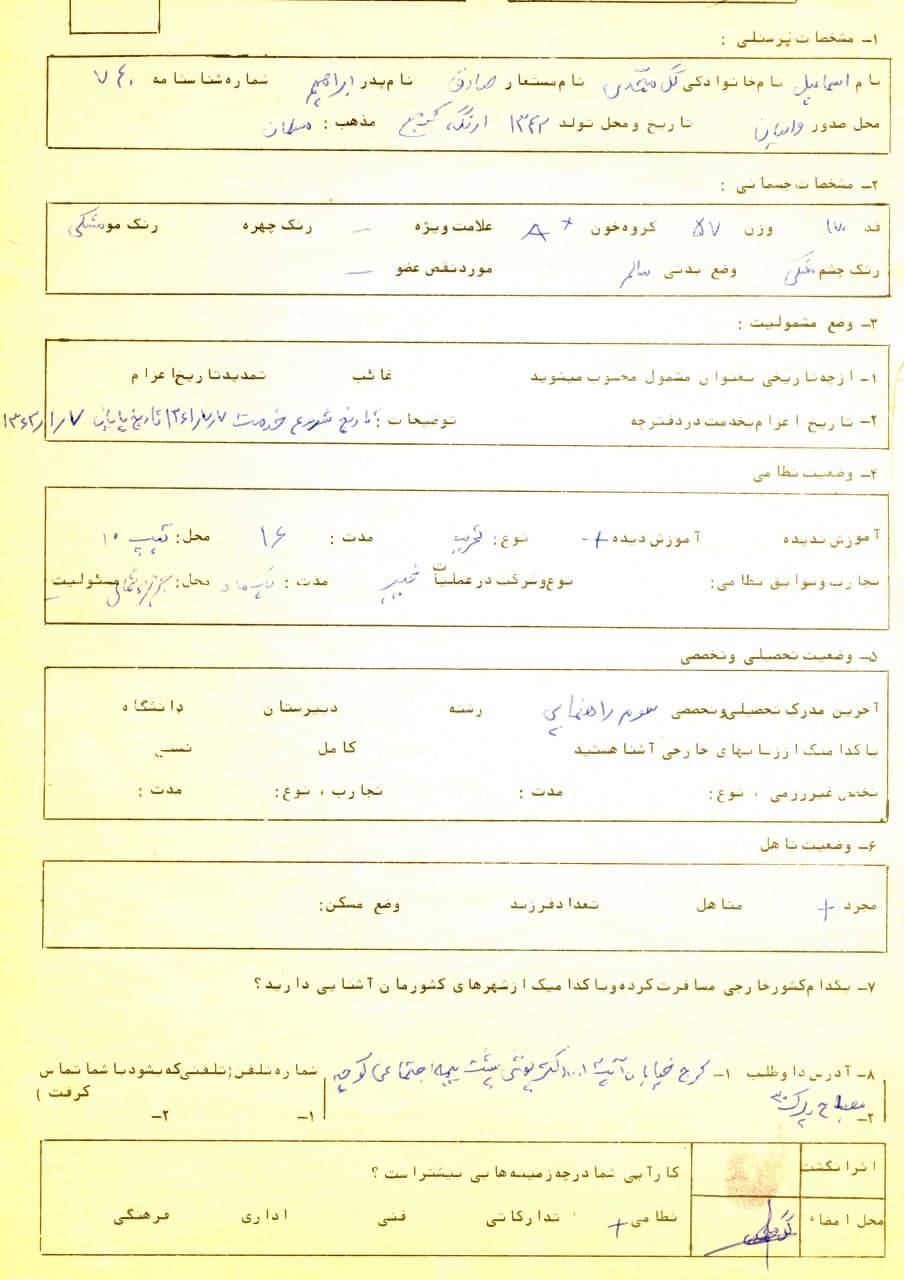 ۱- مشخصات پرسنلی :
نام اسماعیل نام خانوادگی گل محمدی نام مستعار صادق نام پدر ابراهیم شماره شناسنامه ۷۴۰
محل صدور تاریخ و محل تولد ۱۳۴۲ ارنگه کرج مذهب : مسلمان
۲- مشخصات جسمانی :
قد ۱۷۰ وزن ۵۷ گروه خون A+ علامت ویژه — رنگ چهره رنگ مو مشکی
رنگ چشم مشکی وضع بدنی سالم مورد نقص عضو —
۳- وضع مشمولیت :
۱- از چه تاریخی بعنوان مشمول محسوب میشوید غائب تمدید تاریخ اعزام
۲- تاریخ اعزام بخدمت در دفترچه توضیحات : تاریخ شروع خدمت ۱۳۶۱/۷/۷ تاریخ پایان ۱۳۶۳/۱/۷
۴- وضعیت نظامی
آموزش ندیده آموزش دیده + نوع : تخریب مدت : ۱۶ محل : تیپ ۱۰
تجارب و سوابق نظامی : نوع و شرکت در عملیات خیبر مدت : یک ماه محل : مسئولیت
۵- وضعیت تحصیلی و تخصصی
آخرین مدرک تحصیلی و تخصصی سوم راهنمایی رشته دبیرستان دانشگاه
با کدامیک از زبانهای خارجی آشنا هستید کامل نسبی
تخصص غیررزمی ، نوع : مدت : تجارب ، نوع : مدت :
۶- وضعیت تاهل
مجرد + متاهل تعداد فرزند وضع مسکن :
۷- بکدام کشور خارجی مسافرت کرده و با کدامیک از شهرهای کشورمان آشنایی دارید؟
۸- آدرس داوطلب ۱- کرج خیابان پشت بیمه اجتماعی کوچه شماره تلفن (تلفنی که بشود با شما تماس
۲- مصباح پلاک ۳۰ گرفت )
۱- ۲-
اثر انگشت کارآیی شما در چه زمینه هایی بیشتر است ؟
محل امضاء نظامی + تدارکاتی فنی اداری فرهنگی